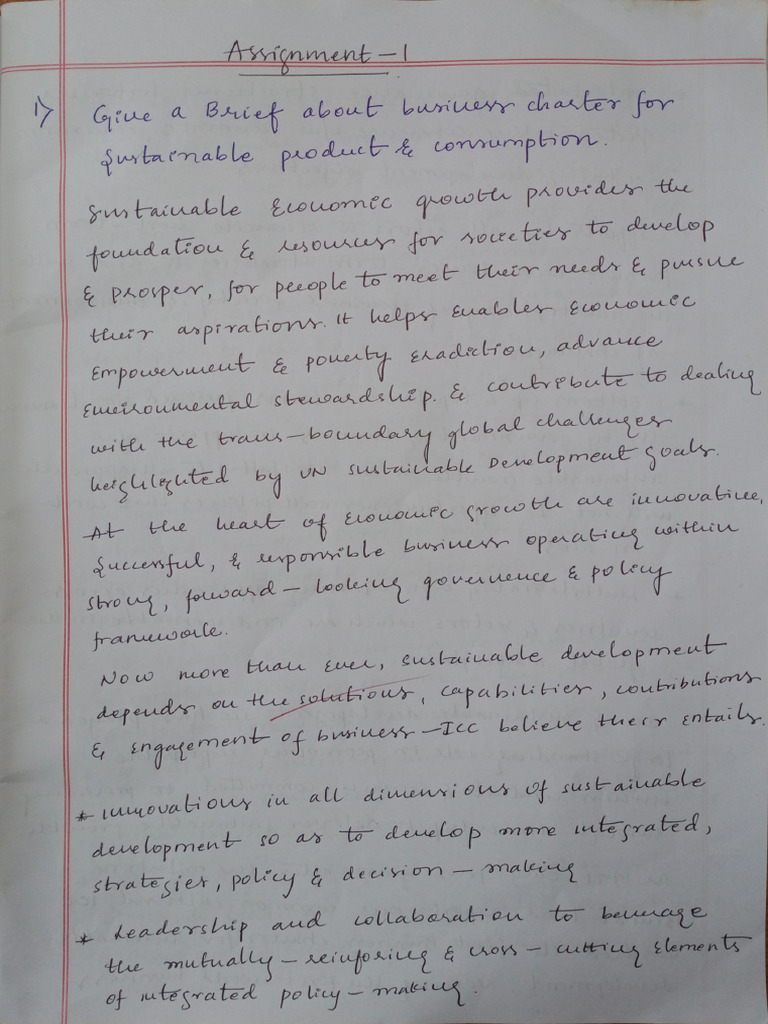 Assignment - 1
1) Give a Brief about business charter for
Sustainable product & consumption.
Sustainable Economic growth provides the
foundation & resources for societies to develop
& prosper, for peeople to meet their needs & pursue
their aspirations. It helps Enables Economic
Empowerment & poverty Eradiction, advance
Environmental stewardship. & contribute to dealing
with the trans-boundary global challenges
heighlighted by UN Sustainable Development goals.
At the heart of Economic growth are innovative,
Successful, & responsible business operating within
strong, forward-looking governence & policy
framework.
Now more than Ever, sustainable development
depends on the solutions, capabilities, contributions
& Engagement of business - ICC believe their Entails.
* innovations in all dimensions of sustainable
development so as to develop more integrated,
strategies, policy & decision - making
* Leadership and collaboration to
the mutually - reinforing & cross - cutting Elements
of integrated policy - making.